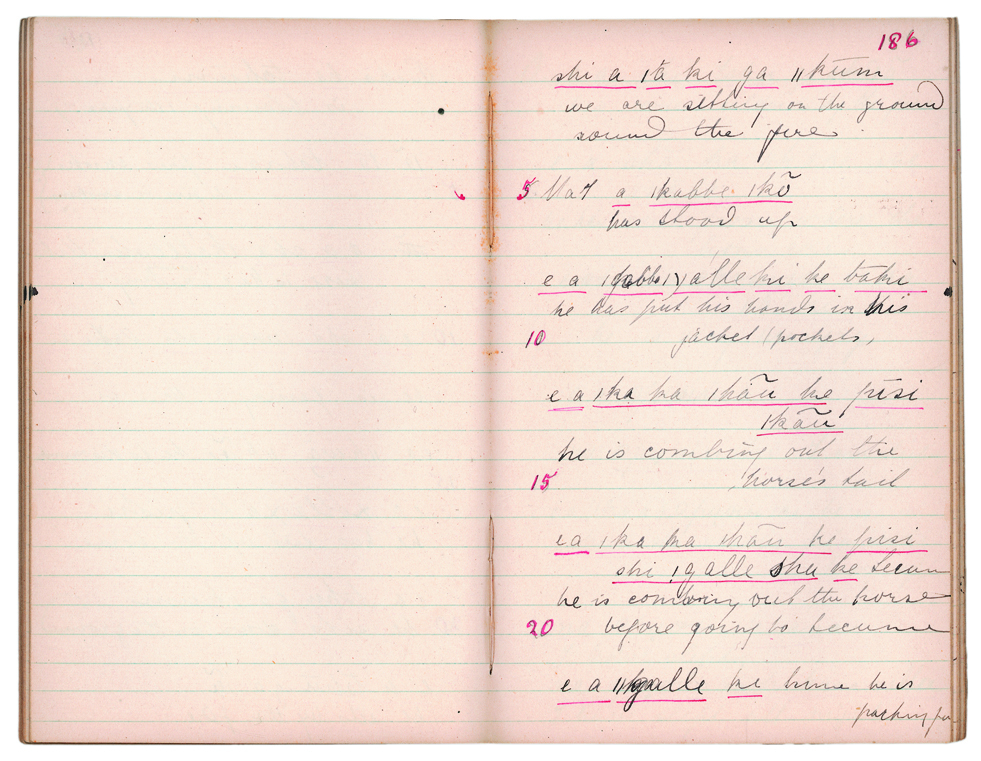 186
shi a ǀtā ki ga ǁkūm
we are sitting on the ground
round the fire
5 a ǀkabbe ǀkõ
has stood up
e a yalle ki ke taki
he has put his hands in his
10 jacket pockets,
e a ǀka ka ǀkãū ke pisi
ǀkãū
he is combing out the
15 horse's tail
e a ǀka ka ǀkãū ke pisi
shi ǀgalle shu ke
he is combing out the horse
20 before going to
e a ke he is
packing